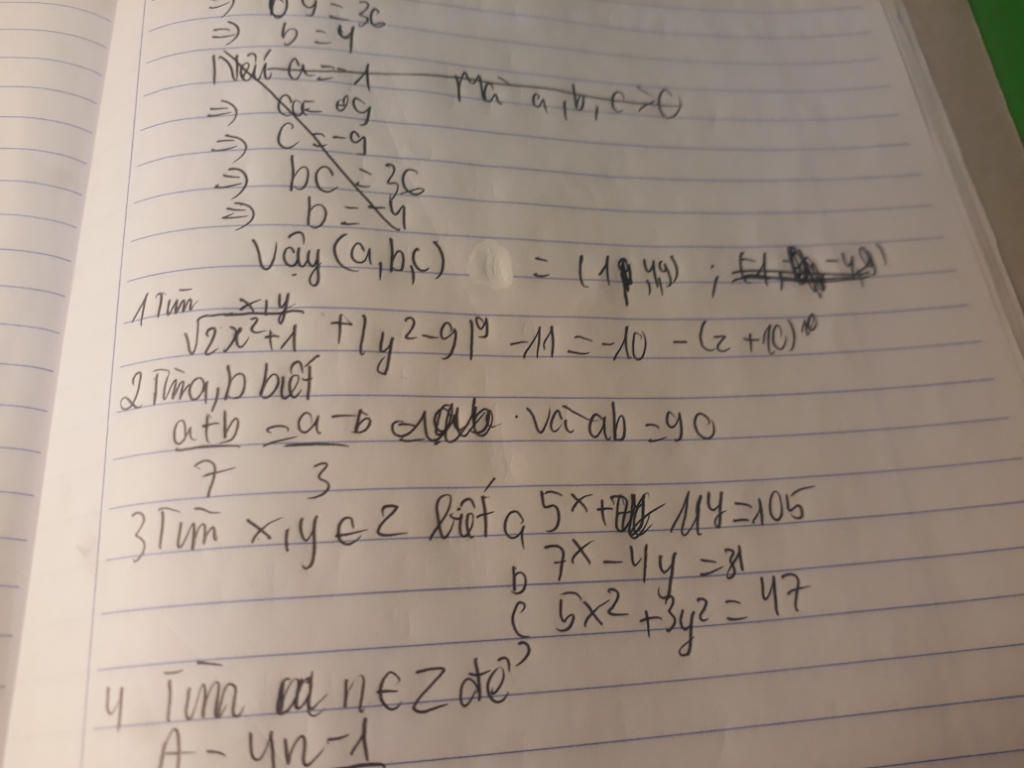 ⇒ b = 4
Nếu a = -1 Mà a,b,c > 0
⇒
⇒ c = -9
⇒ bc = 36
⇒ b = -4
Vậy (a,b,c) = (1,4,9) ;
1 Tìm x,y
√2x²+1 + |y²-9|⁹ -11 = -10 - (z+10)¹⁰
2 Tìm a,b biết
a+b/7 = a-b/3 và ab = 90
3 Tìm x,y ∈ Z biết a 5x + 11y = 105
b 7x - 4y = 31
c 5x² + 3y² = 47
4 Tìm n ∈ Z để
A = 4n-1